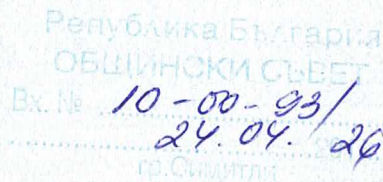 Република България
ОБЩИНСКИ СЪВЕТ
Вх. № 10-00-93/
24.04. 26
гр. Симитли